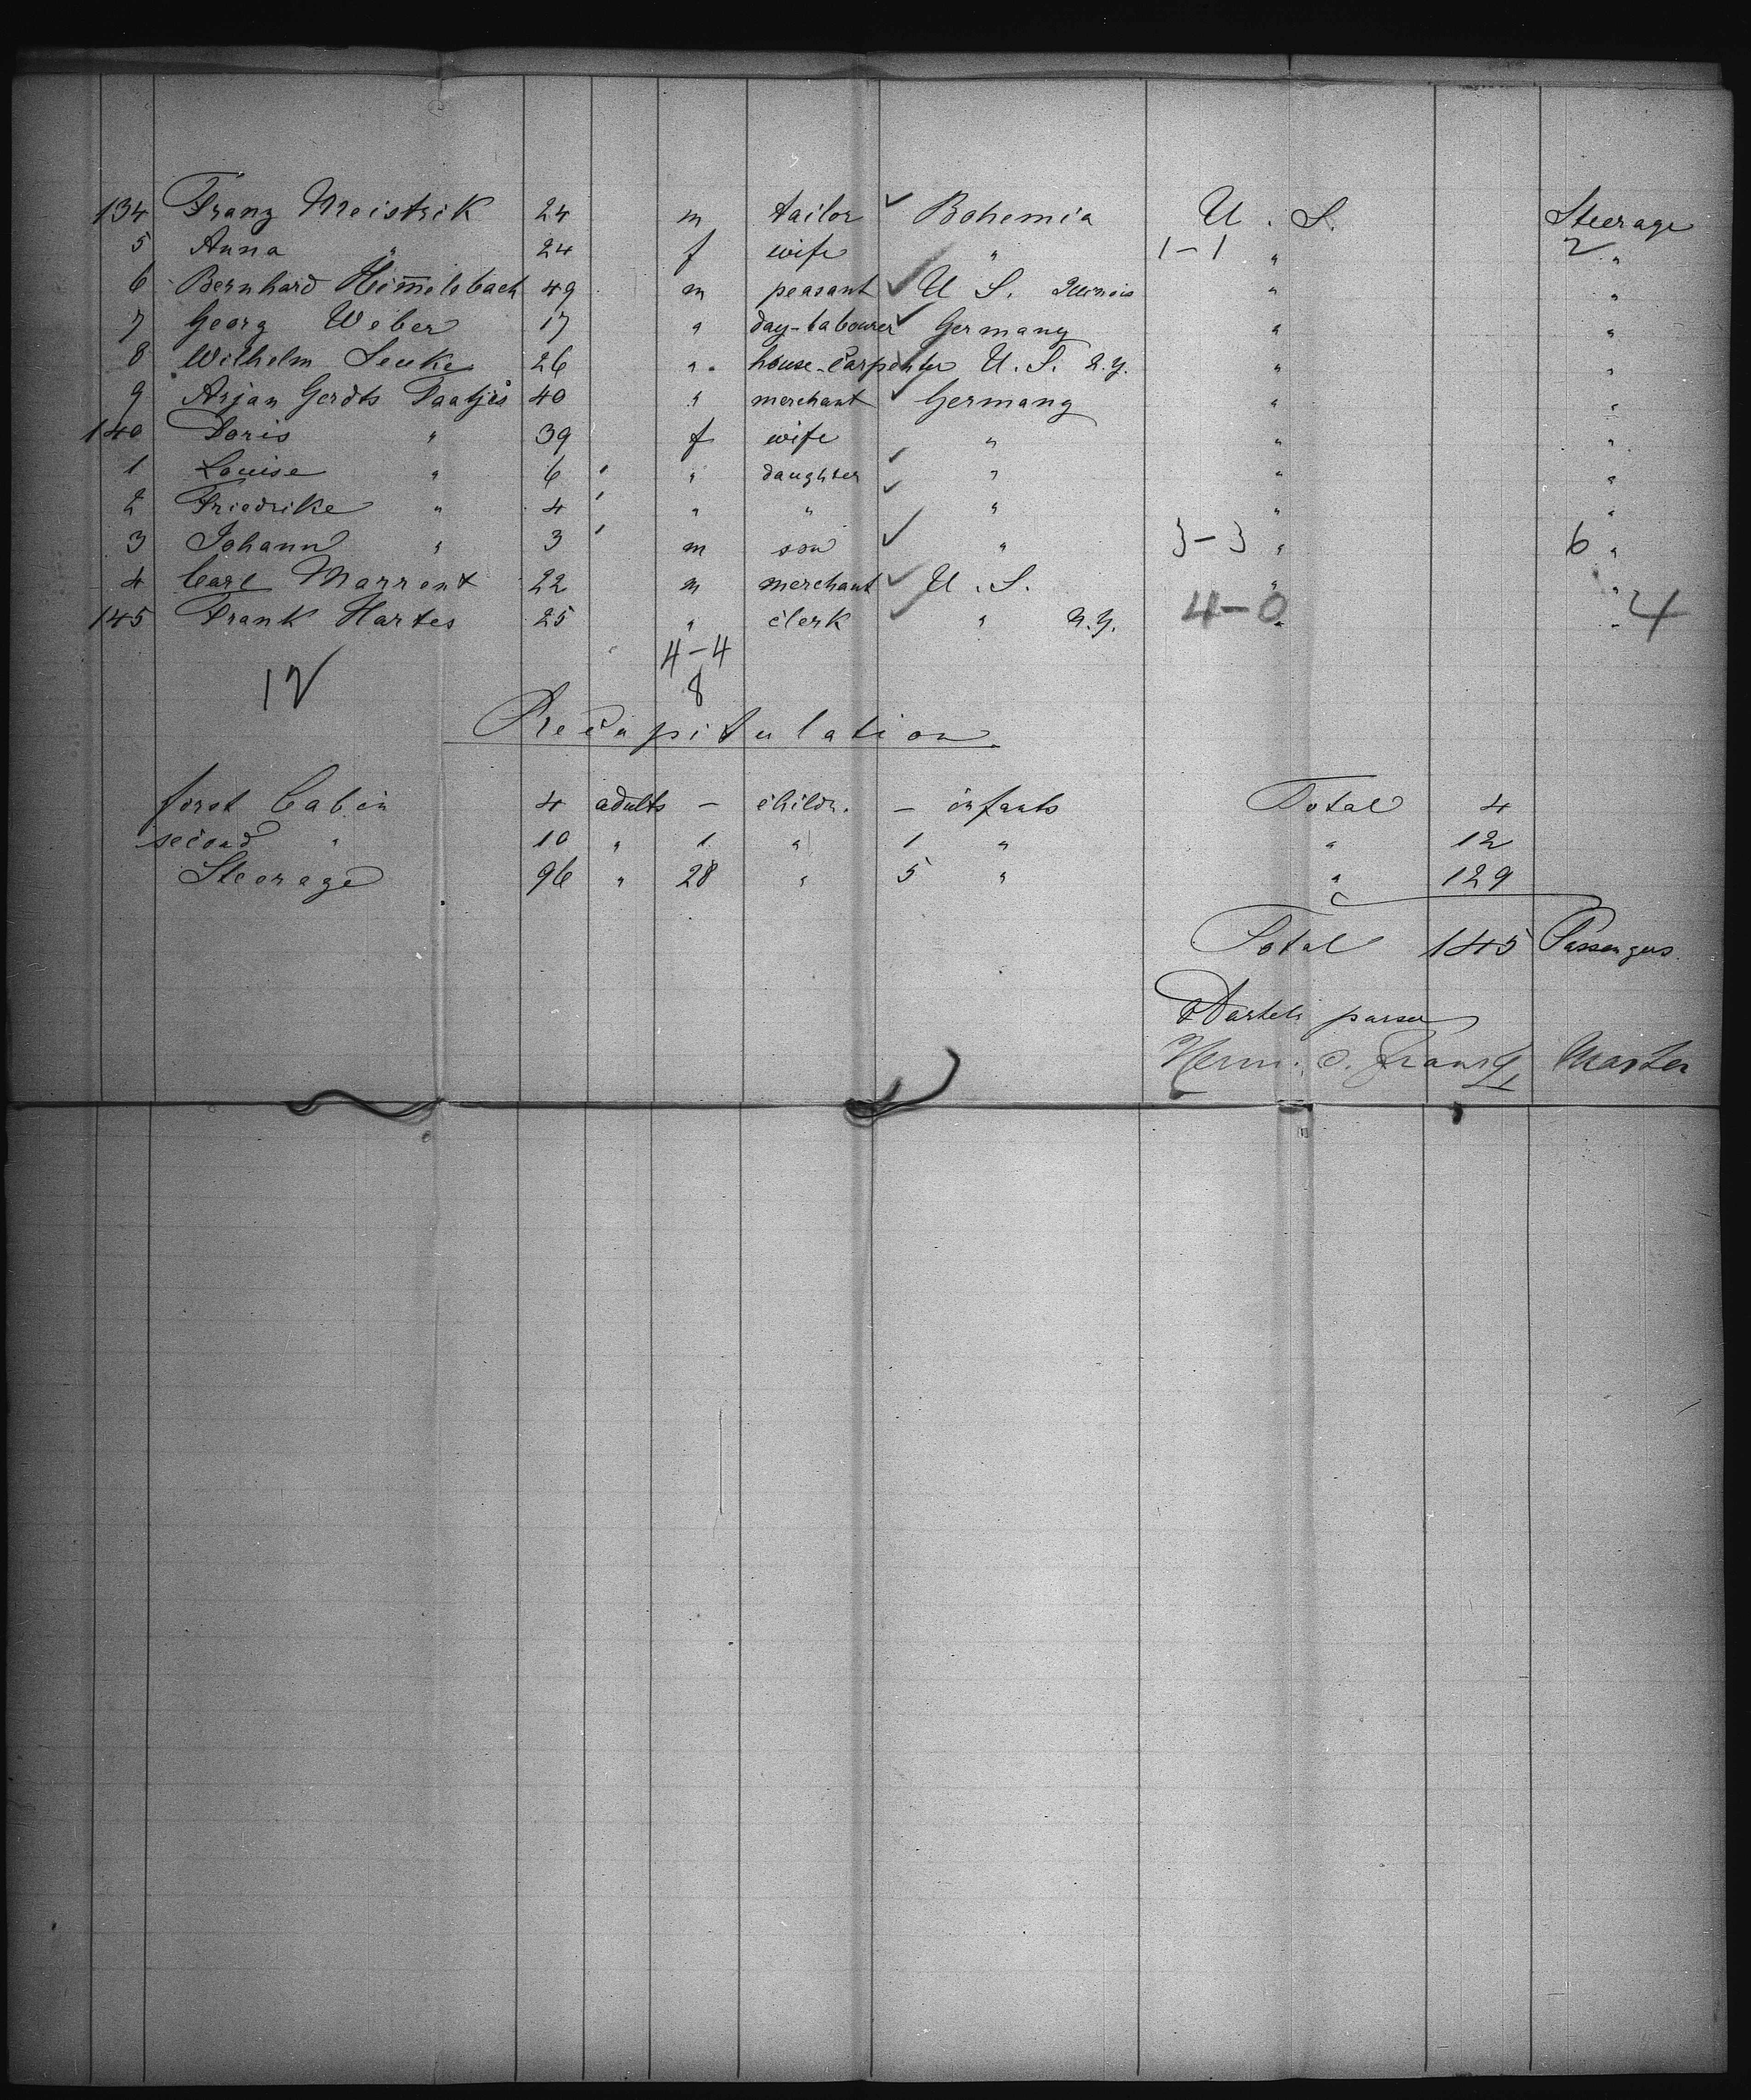 134 Franz Meistrik 24 m tailor ✓ Bohemia U. S. Steerage
5 Anna " 24 f wife " 1-1 " 2 "
6 Bernhard Him̅elsbach 49 m peasant ✓ U S. Illinois " "
7 Georg Weber 17 " day-labourer ✓ Germany " "
8 Wilhelm Leuke 26 " house-carpenter U. S. N.Y. " "
9 Arjan Gerdts Taatjes 40 " merchant ✓ Germany " "
140 Doris " 39 f wife " " "
1 Louise " 6 ' " daughter ✓ " " "
2 Friedrike " 4 ' " " ✓ " " "
3 Johann " 3 ' m son ✓ " 3-3 " 6 "
4 Carl Marrent 22 m merchant ✓ U. S. " "
145 Frank Hartes 25 " clerk ✓ " N.Y. 4-0 " " 4
4-4
12 8
Recapitulation
first Cabin 4 adults - childr. - infants Total 4
second " 10 " 1 " 1 " " 12
Steerage 96 " 28 " 5 " " 129
Total 145 Passengers.
purser
Master